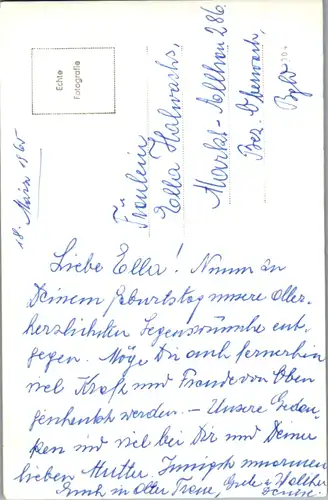 Echte
Fotografie
18. März 1965
Fräulein
Ella Halwachs,
Markt-Allhau 286
Bez. Oberwart,
Bgld
Liebe Ella! Nimm zu
Deinem Geburtstag unsere aller-
herzlichsten Segenswünsche ent-
gegen. Möge Dir auch fernerhin
viel Kraft und Freude von Oben
geschenkt werden. – Unsere Gedan-
ken sind viel bei Dir und Deiner
lieben Mutter. Innigst umarmen
Euch in alter Treue, Grete u. Walther